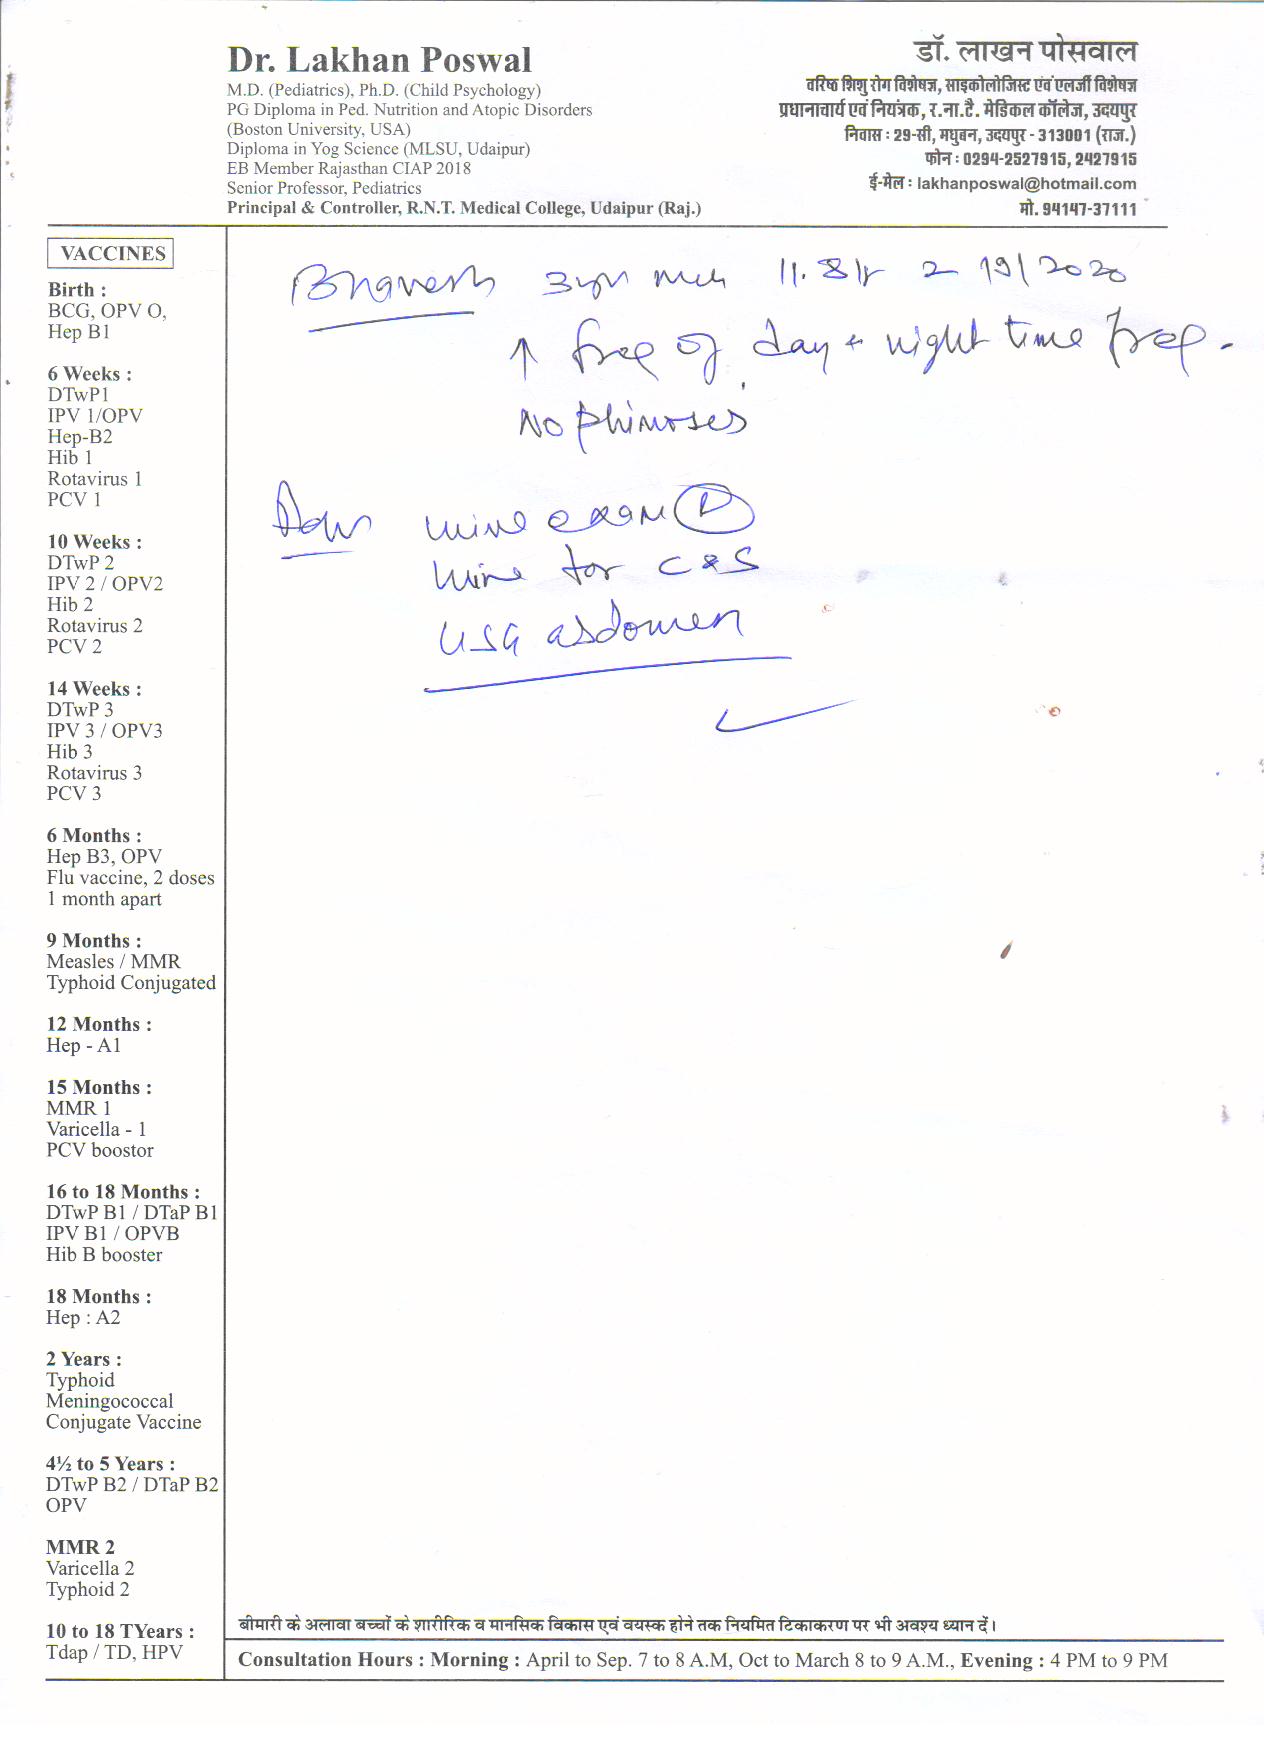 Dr. Lakhan Poswal
M.D. (Pediatrics), Ph.D. (Child Psychology)
PG Diploma in Ped. Nutrition and Atopic Disorders
(Boston University, USA)
Diploma in Yog Science (MLSU, Udaipur)
EB Member Rajasthan CIAP 2018
Senior Professor, Pediatrics
Principal & Controller, R.N.T. Medical College, Udaipur (Raj.)
डॉ. लाखन पोसवाल
वरिष्ठ शिशु रोग विशेषज्ञ, साइकोलोजिस्ट एवं एलर्जी विशेषज्ञ
प्रधानाचार्य एवं नियंत्रक, र.ना.टै. मेडिकल कॉलेज, उदयपुर
निवास : 29-सी, मधुबन, उदयपुर - 313001 (राज.)
फोन : 0294-2527915, 2427915
ई-मेल : lakhanposwal@hotmail.com
मो. 94147-37111
VACCINES
Birth :
BCG, OPV O,
Hep B1
6 Weeks :
DTwP1
IPV 1/OPV
Hep-B2
Hib 1
Rotavirus 1
PCV 1
10 Weeks :
DTwP 2
IPV 2 / OPV2
Hib 2
Rotavirus 2
PCV 2
14 Weeks :
DTwP 3
IPV 3 / OPV3
Hib 3
Rotavirus 3
PCV 3
6 Months :
Hep B3, OPV
Flu vaccine, 2 doses
1 month apart
9 Months :
Measles / MMR
Typhoid Conjugated
12 Months :
Hep - A1
15 Months :
MMR 1
Varicella - 1
PCV boostor
16 to 18 Months :
DTwP B1 / DTaP B1
IPV B1 / OPVB
Hib B booster
18 Months :
Hep : A2
2 Years :
Typhoid
Meningococcal
Conjugate Vaccine
4½ to 5 Years :
DTwP B2 / DTaP B2
OPV
MMR 2
Varicella 2
Typhoid 2
10 to 18 TYears :
Tdap / TD, HPV
Bhavesh 2/9/2020
↑ freq of day + night time freq.
No phimoses
Adv urine exam (R)
urine for C & S
USG abdomen
बीमारी के अलावा बच्चों के शारीरिक व मानसिक विकास एवं वयस्क होने तक नियमित टिकाकरण पर भी अवश्य ध्यान दें।
Consultation Hours : Morning : April to Sep. 7 to 8 A.M, Oct to March 8 to 9 A.M., Evening : 4 PM to 9 PM